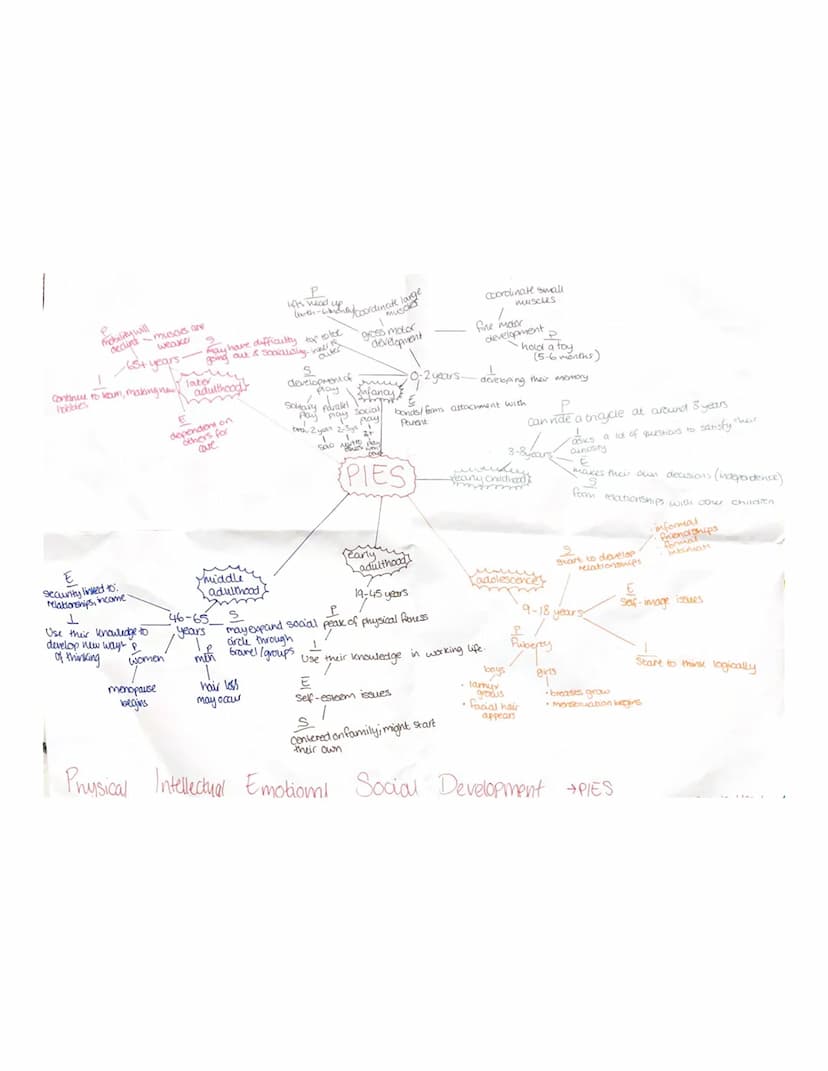 P
lifts head up
coordinate large
muscles
gross motor
development
coordinate small
muscles
fine motor
development
P
hold a toy
(5-6 months)
0-2 years
I
developing their memory
infancy
S
development of
play
Solitary
play
Parallel
play
Social
play
2-3yrs
3+
solo
E
bonds/form attachment with
parent
P
mobility will
decline
muscles are
weaker
65+ years
S
may have difficulty
going out & socialising
I
continue to learn, making new
hobbies
later
adulthood
E
dependent on
others for
care
PIES
early childhood
3-8 years
P
can ride a tricycle at around 3 years
I
asks a lot of questions to satisfy their
curiosity
E
makes their own decisions (independence)
S
form relationships with other children
middle
adulthood
46-65
years
E
security linked to:
relationships, income
I
Use their knowledge to
develop new ways
of thinking
P
women
menopause
begins
P
men
hair loss
may occur
S
may expand social
circle through
travel/groups
early
adulthood
19-45 years
P
peak of physical fitness
I
Use their knowledge in working life.
E
self-esteem issues
S
centered on family; might start
their own
adolescence
9-18 years
S
start to develop
relationships
· informal
· friendships
· formal
· intimate
E
Self-image issues
I
Start to think logically
P
Puberty
boys
• larnyx
grows
• facial hair
appears
girls
• breastes grow
• menstruation begins
Physical Intellectual Emotional Social Development → PIES